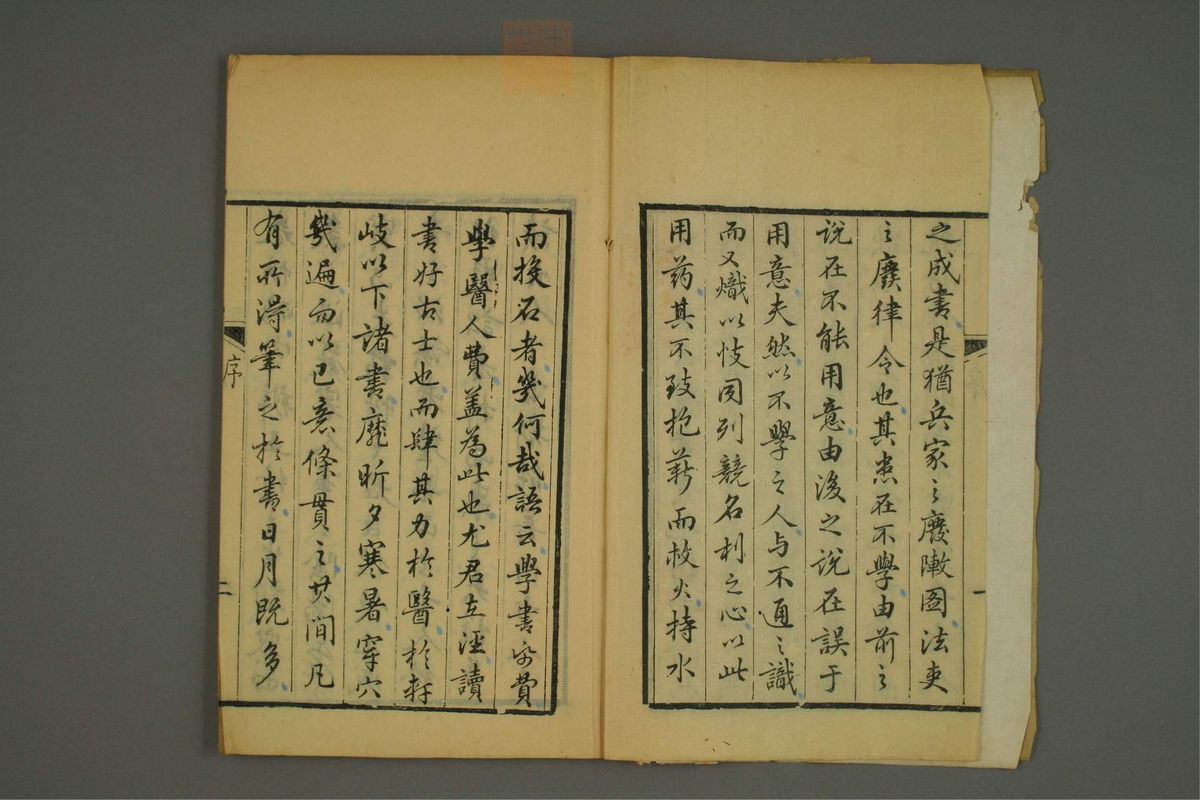 之成書是猶兵家之廢陣图法吏
之廢律令也其患在不學由前之
說在不能用意由後之說在誤于
用意夫然以不學之人与不通之識
而又熾以忮同列競名利之心以此
用药其不致抱薪而救火持水
而投石者幾何哉語云學書紙費
學醫人費盖為此也尤君在涇讀
書好古士也而肆其力於醫於軒
岐以下諸書靡昕夕寒暑穿穴
幾遍而以己意條貫之其間凡
有所得筆之於書日月既多
序
二